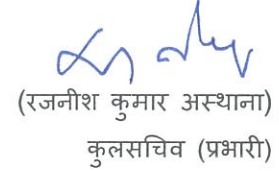 (रजनीश कुमार अस्थाना)
कुलसचिव (प्रभारी)